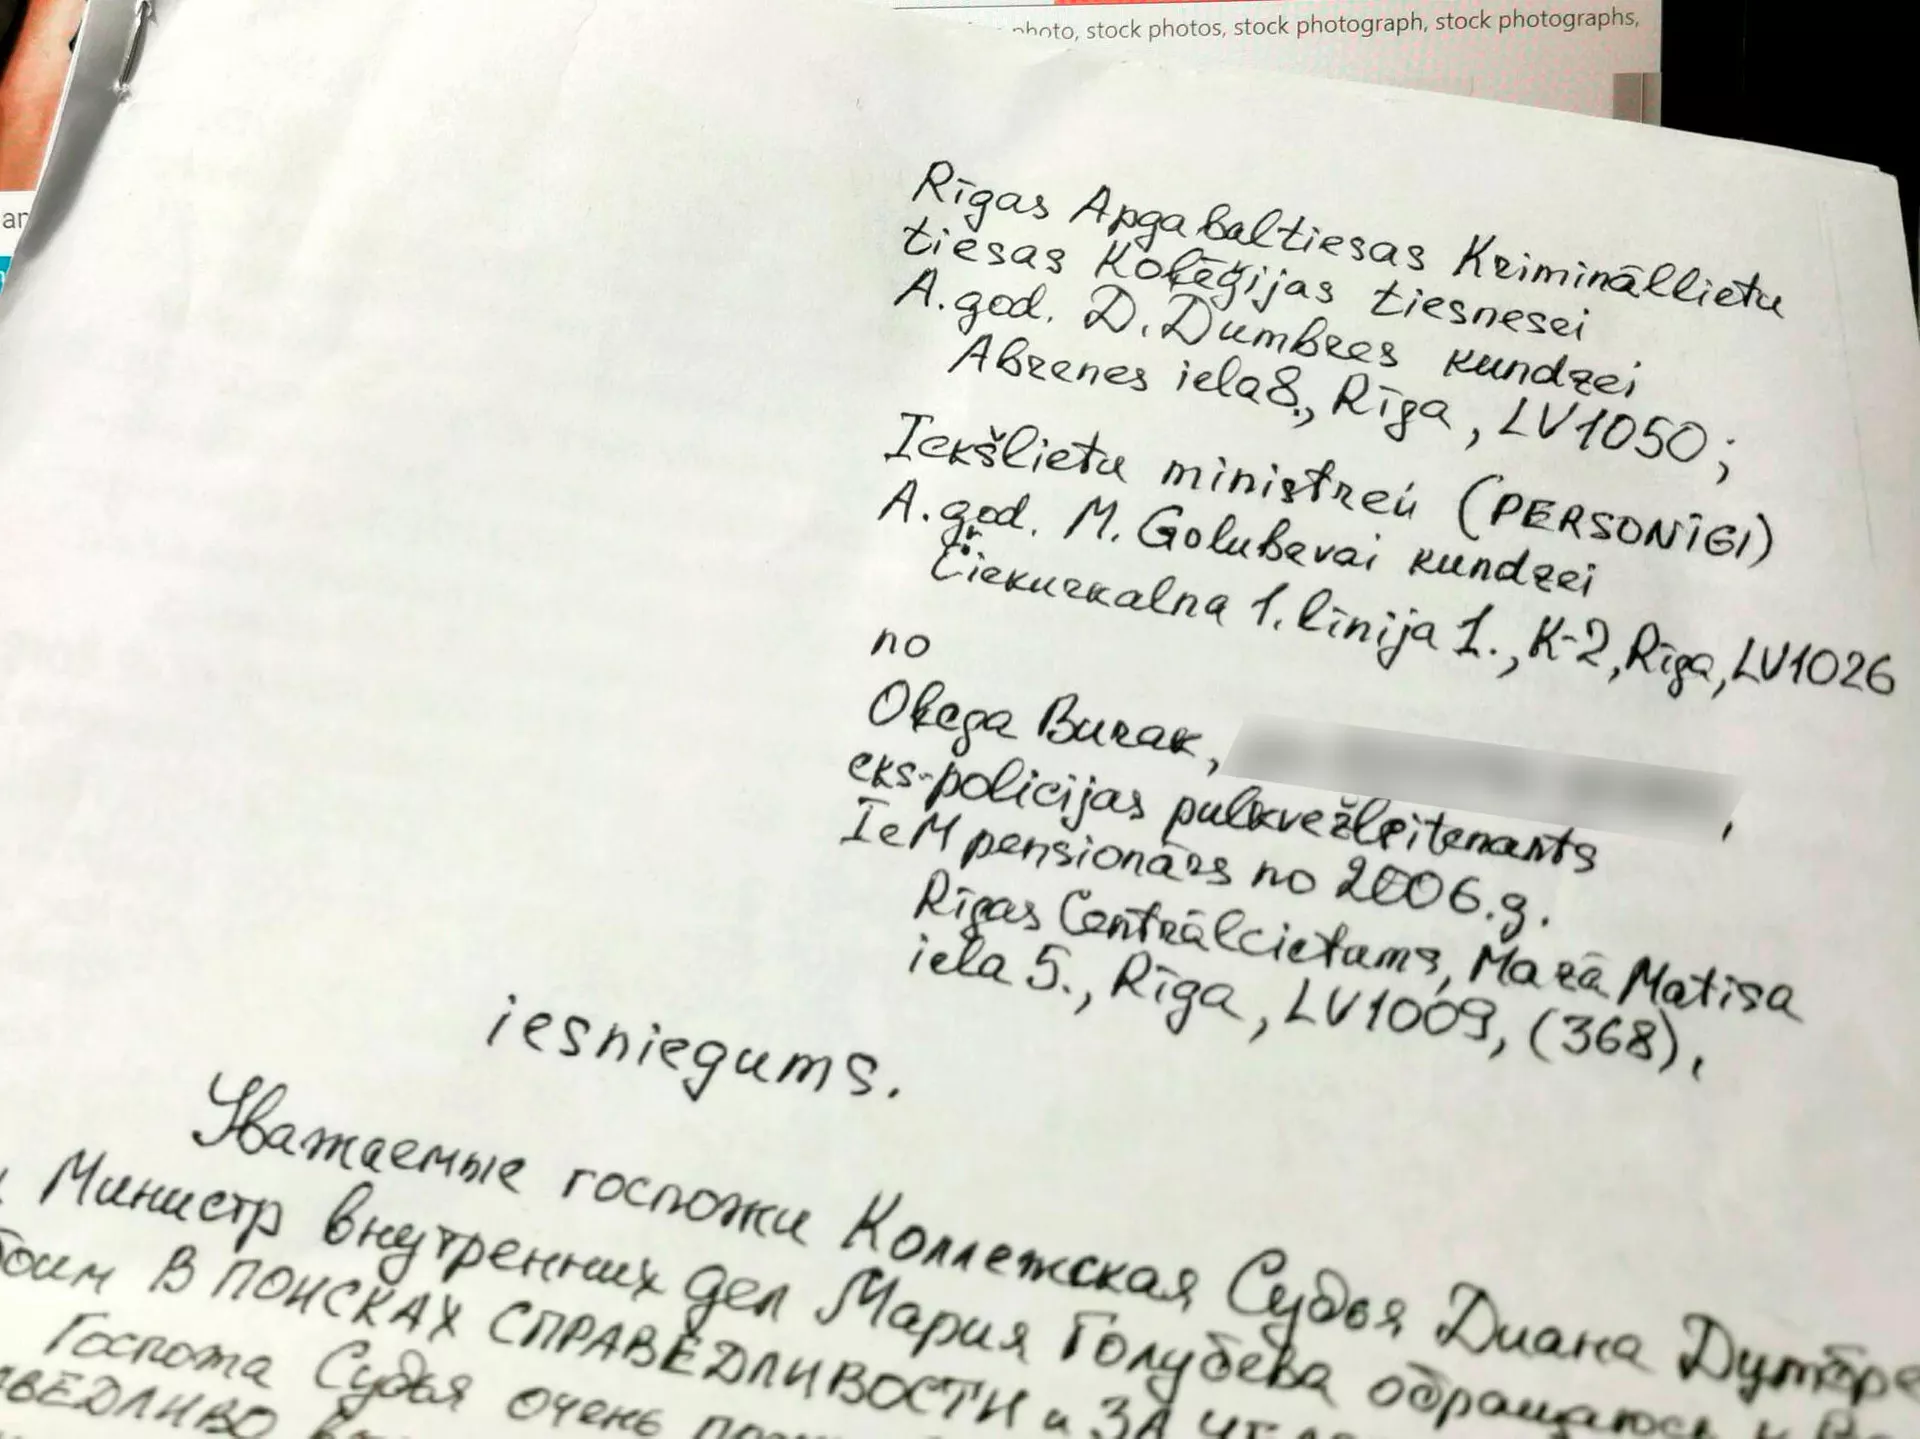 photo, stock photos, stock photograph, stock photographs,
Rīgas Apgabaltiesas Krimināllietu
tiesas Koļēģijas tiesnesei
A. god. D. Dumbres kundzei
Abrenes iela 8., Rīga, LV1050;
Iekšlietu ministrei (PERSONĪGI)
A. god. M. Golubevai kundzei
Čiekurkalna 1. līnija 1., K-2, Rīga, LV1026
no
Oļega Burak,
eks-policijas pulkvežleitenants
IeM pensionārs no 2006.g.
Rīgas Centrālcietums, Mazā Matīsa
iela 5., Rīga, LV1009, (368),
iesniegums.
Уважаемые госпожи Коллежская Судья Диана Думбре
Министр внутренних дел Мария Голубева обращаюсь к
В ПОИСКАХ СПРАВЕДЛИВОСТИ и ЗА
Госпожа Судья очень